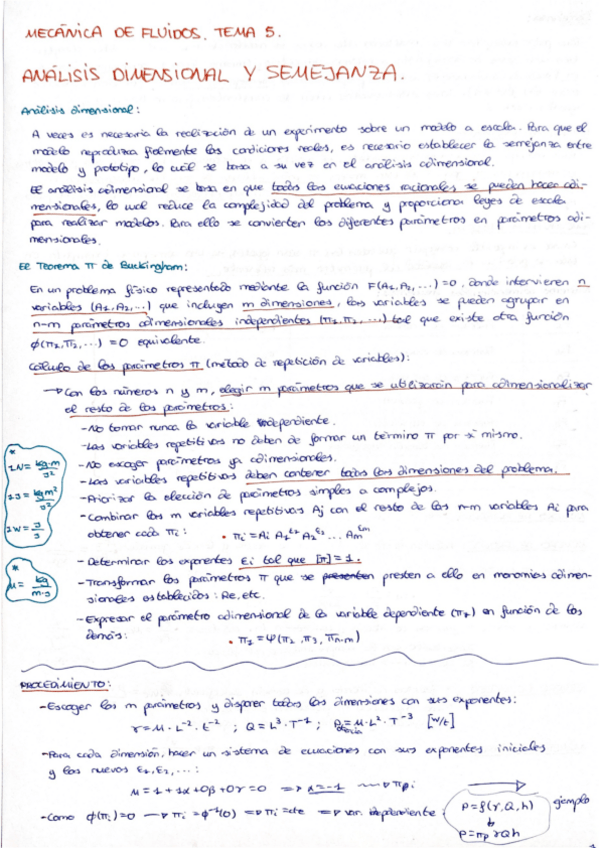 MECÁNICA DE FLUIDOS. TEMA 5.
ANÁLISIS DIMENSIONAL Y SEMEJANZA.
Análisis dimensional:
A veces es necesaria la realización de un experimento sobre un modelo a escala. Para que el
modelo reproduzca fielmente las condiciones reales, es necesario establecer la semejanza entre
modelo y prototipo, lo cual se basa a su vez en el análisis adimensional.
El análisis adimensional se basa en que todas las ecuaciones racionales se pueden hacer adi-
mensionales, lo cual reduce la complejidad del problema y proporciona leyes de escala
para realizar modelos. Para ello se convierten los diferentes parámetros en parámetros adi-
mensionales.
El Teorema π de Buckingham:
En un problema físico representado mediante la función F(A1,A2,...)=0, donde intervienen n
variables (A1,A2,...) que incluyen m dimensiones, las variables se pueden agrupar en
n-m parámetros adimensionales independientes (π1,π2,...) tal que existe otra función
ϕ(π1,π2,...)=0 equivalente.
Cálculo de los parámetros π (método de repetición de variables):
→ Con los números n y m, elegir m parámetros que se utilizarán para adimensionalizar
el resto de los parámetros:
- No tomar nunca la variable independiente.
- Las variables repetitivas no deben de formar un término π por sí mismo.
- No escoger parámetros ya adimensionales.
- Las variables repetitivas deben contener todas las dimensiones del problema.
- Priorizar la elección de parámetros simples a complejos.
- Combinar las m variables repetitivas Aj con el resto de las n-m variables Ai para
obtener cada πi: • πi = Ai A1^ε1 A2^ε2 ... Am^εm
* 1N = kg·m/s²
1J = kg·m²/s²
1W = J/s
- Determinar los exponentes εi tal que [π]=1.
- Transformar los parámetros π que se presten a ello en monomios adimen-
sionales establecidos: Re, etc.
* μ = kg/m·s
- Expresar el parámetro adimensional de la variable dependiente (π1) en función de los
demás: • π1 = φ(π2, π3, πn-m)
PROCEDIMIENTO:
- Escoger los m parámetros y disponer todas las dimensiones con sus exponentes:
γ = M·L^-2·t^-2 ; Q = L^3·T^-1 ; P = M·L^2·T^-3 [W/t]
- Para cada dimensión, hacer un sistema de ecuaciones con sus exponentes iniciales
y los nuevos ε1, ε2,...:
M = 1+1α+0β+0γ=0 ⇒ α=-1 → πpi
- Como ϕ(πi)=0 → πi=ϕ^-1(0) ⇒ πi=cte ⇒ var. dependiente
P=f(γ,Q,h)
P=πp γQh
ejemplo
1